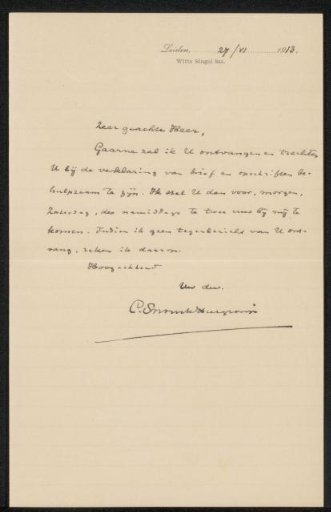 Leiden, 27/VI 1913.
Witte Singel 84a.
Zeer geachte Heer,
Gaarne zal ik U ontvangen en trachten
U bij de verklaring van brief en opschriften be-
hulpzaam te zijn. Ik stel U dan voor, morgen,
Zaterdag, des namiddags te twee uur bij mij te
komen. Indien ik geen tegenbericht van U ont-
vang, reken ik daarop.
Hoogachtend
Uw dw.
C. Snouck Hurgronje